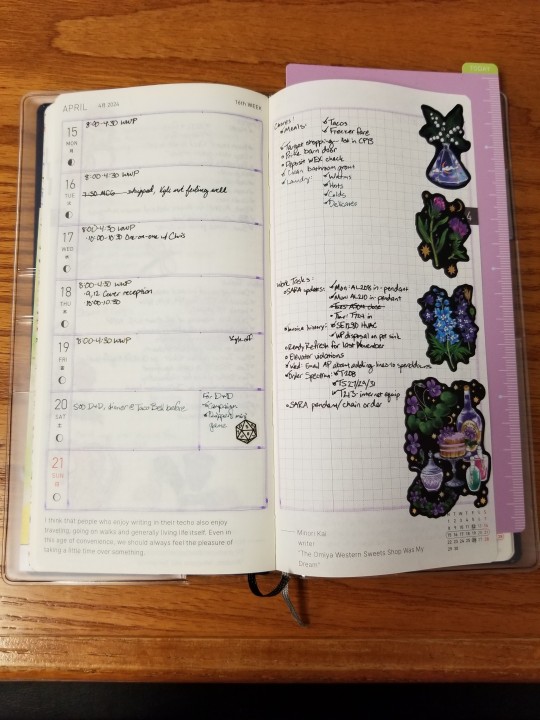 APRIL 4月 2024 16th WEEK
15 MON 月 8:00-4:30 WWP
16 TUE 火 8:00-4:30 WWP
skipped, Kyle not feeling well
17 WED 水 8:00-4:30 WWP
10:00-10:30 One-on-one w/ Chris
18 THU 木 8:00-4:30 WWP
9,12 Cover reception
10:00-10:30
19 FRI 金 8:00-4:30 WWP Kyle off
20 SAT 土 5:00 D+D, dinner @ Taco Bell before
D+D
campaign
game
21 SUN 日
I think that people who enjoy writing in their techo also enjoy
traveling, going on walks and generally living life itself. Even in
this age of convenience, we should always feel the pleasure of
taking a little time over something.
TODAY
Chores:
Meals: Tacos
Freezer fare
Target shopping
barn door
Deposit WEX check
Clean bathroom
Laundry: Whites
Hots
Colds
Delicates
4
Work Tasks:
SARA updates: Mon: AL208 in-pendant
Mon: AL210 in-pendant
Invoice history: SE1230 HVAC
disposal on pet sink
Ready Refresh for last November
Elevator violations
Wed: Email AP about adding lines to spreadsheets
Order Spectrum: T208
T213-internet equip
SARA pendant/chain order
Minori Kai
writer
"The Omiya Western Sweets Shop Was My
Dream"
S M T W T F S